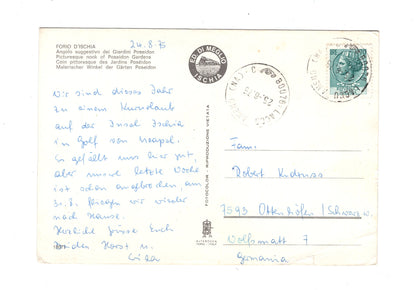 FORIO D'ISCHIA
Angolo suggestivo dei Giardini Poseidon
Picturesque nook of Poseidon Gardens
Coin pittoresque des Jardins Poséidon
Malerischer Winkel der Gärten Poseidon
24.8.75
Wir sind dieses Jahr
zu einem Kururlaub
auf der Insel Ischia
im Golf von Neapel.
Es gefällt uns hier gut,
aber unsere letzte Woche
ist schon angebrochen, am
fliegen wir wieder
nach Hause.
Herzliche Grüsse Euch
von Horst u.
ED. DI MEGLIO
ISCHIA
FOTOCOLOR - RIPRODUZIONE VIETATA
80076 LACCO
Fam.
Robert
7593 Ottenhöfen/Schwarzw.
Wolfsmatt 7
Germania